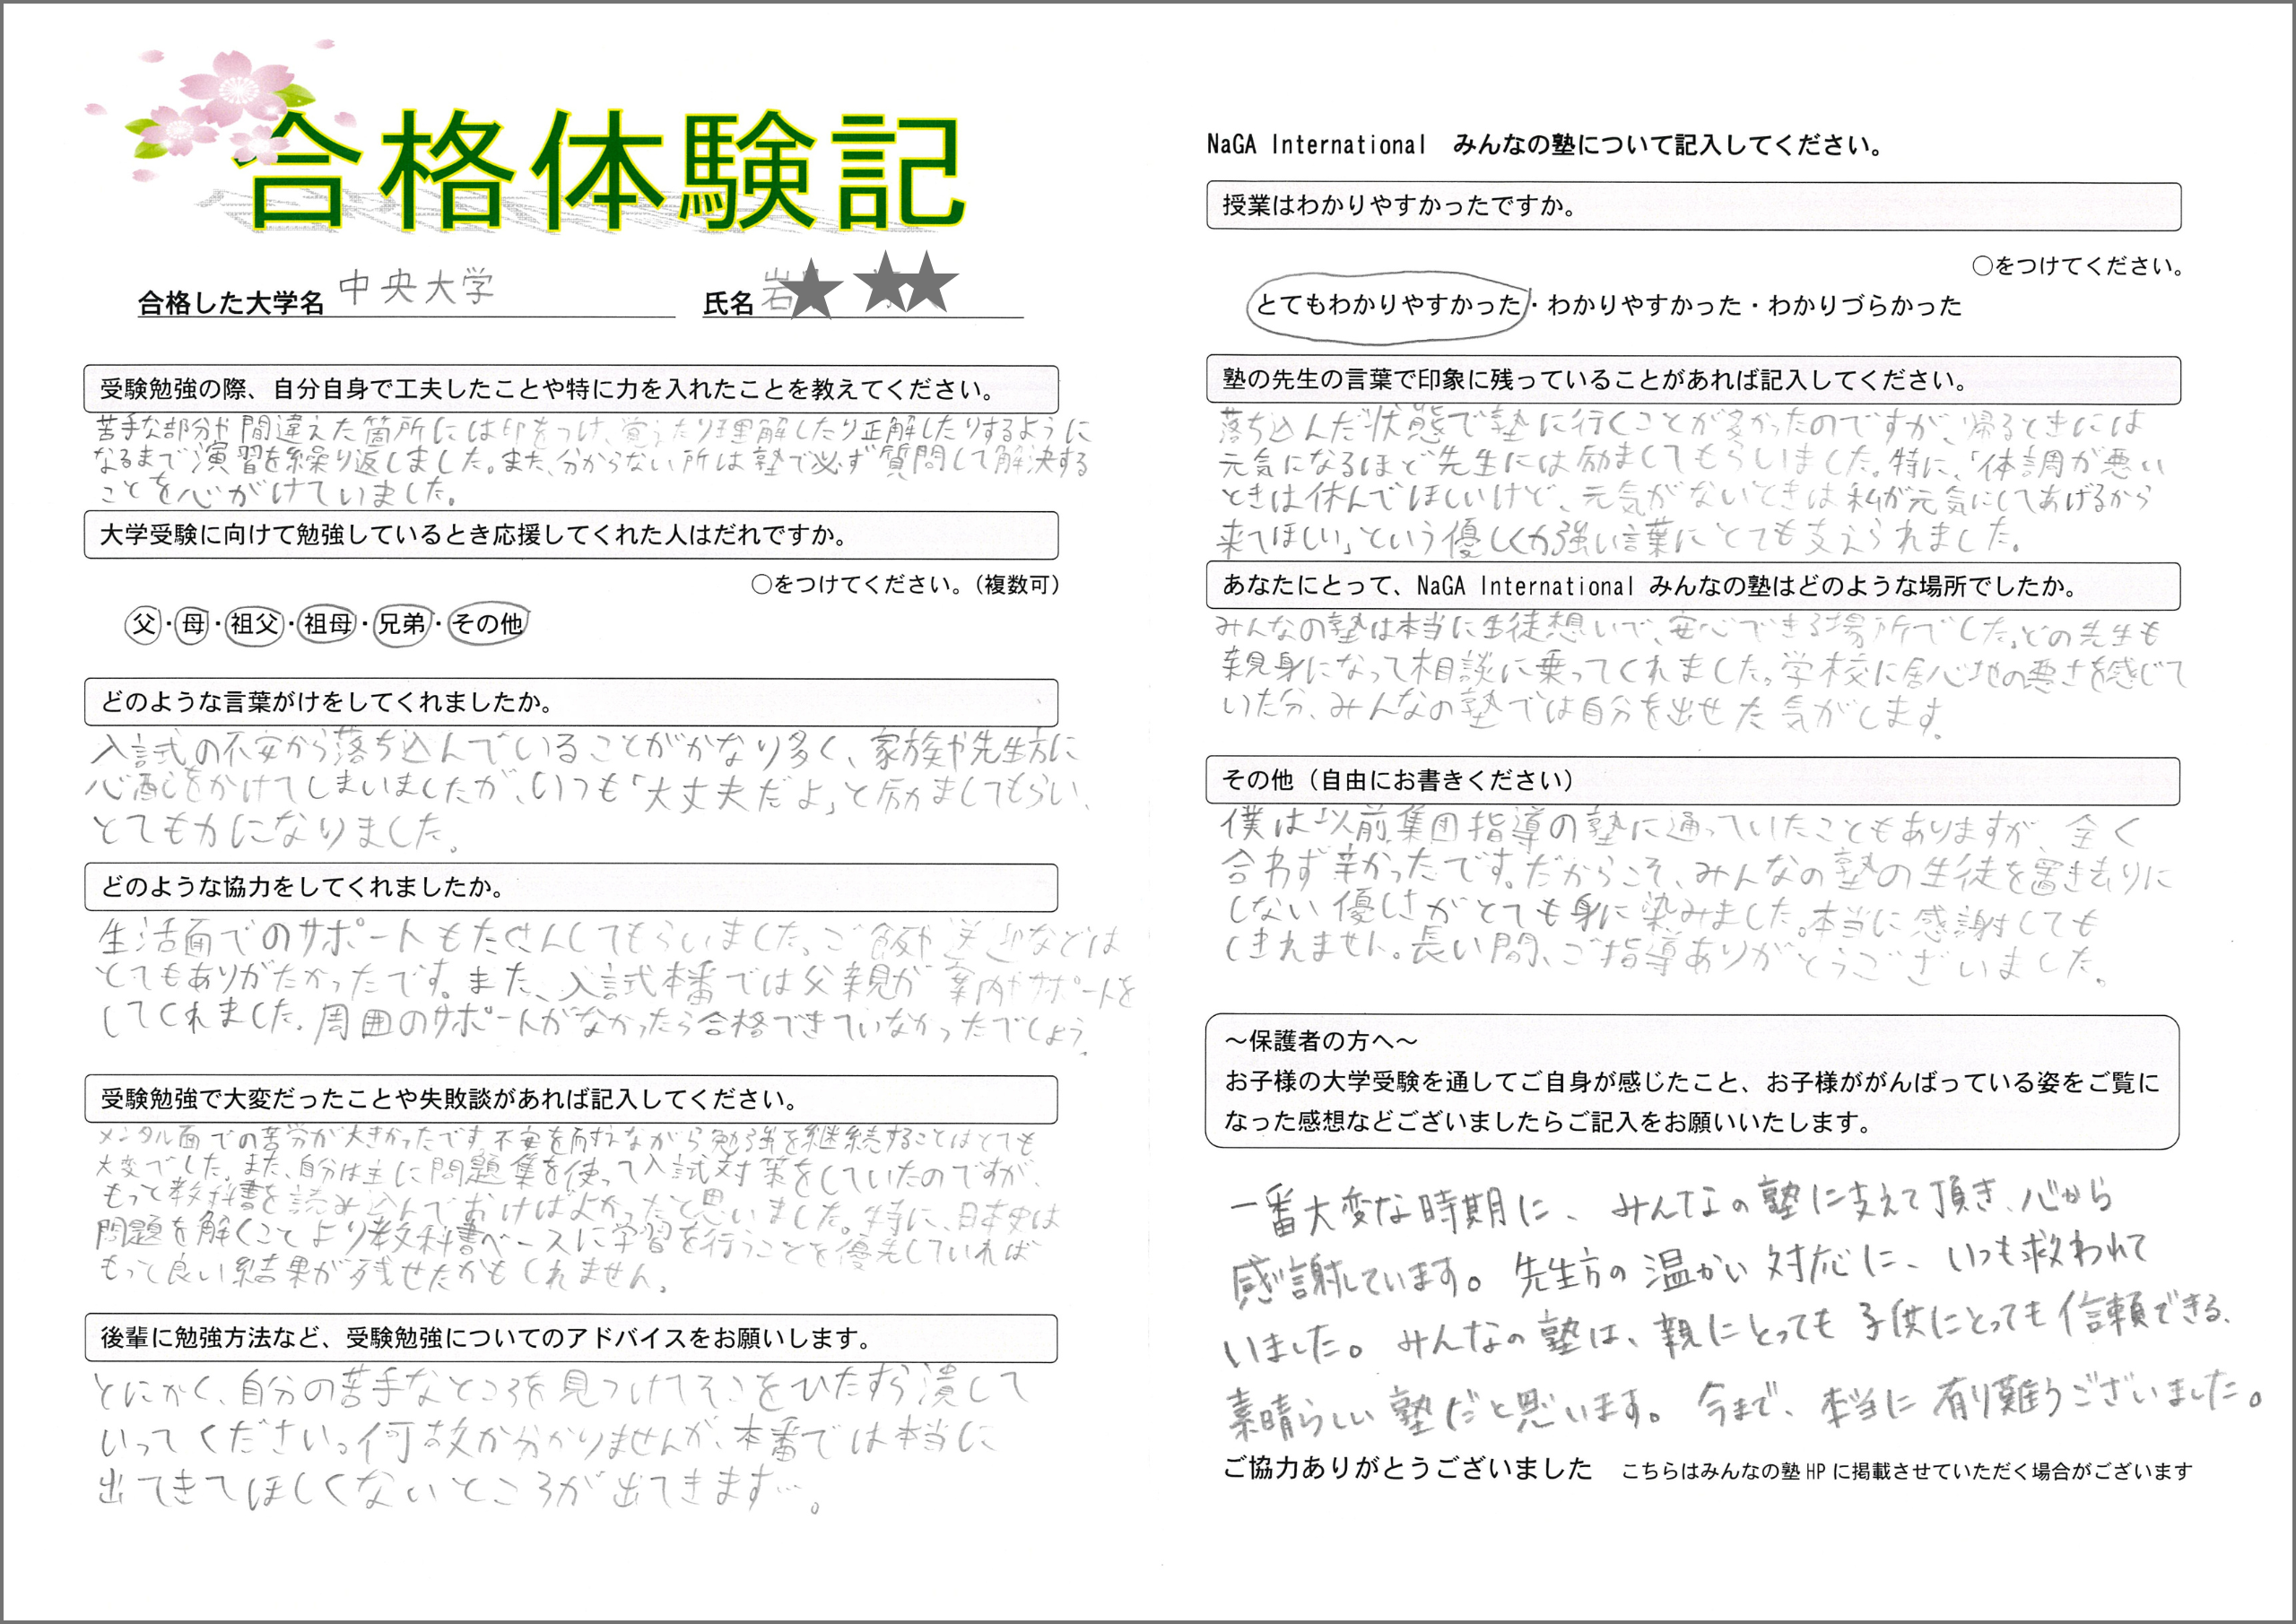 合格体験記
合格した大学名 中央大学
氏名 岩
受験勉強の際、自分自身で工夫したことや特に力を入れたことを教えてください。
苦手な部分や間違えた箇所には印をつけ、覚えたり理解したり正解したりするように
なるまで演習を繰り返しました。また、分からない所は塾で必ず質問して解決する
ことを心がけていました。
大学受験に向けて勉強しているとき応援してくれた人はだれですか。
○をつけてください。（複数可）
父・母・祖父・祖母・兄弟・その他
どのような言葉がけをしてくれましたか。
入試の不安から落ち込んでいることがかなり多く、家族や先生方に
心配をかけてしまいましたが、いつも「大丈夫だよ」と励ましてもらい、
とても力になりました。
どのような協力をしてくれましたか。
生活面でのサポートもたくさんしてもらいました。ご飯や送迎などは
とてもありがたかったです。また、入試本番では父親が案内やサポートを
してくれました。周囲のサポートがなかったら合格できていなかったでしょう。
受験勉強で大変だったことや失敗談があれば記入してください。
メンタル面での苦労が大きかったです。不安を耐えながら勉強を継続することはとても
大変でした。また、自分は主に問題集を使って入試対策をしていたのですが、
もっと教科書を読み込んでおけばよかったと思いました。特に、日本史は
問題を解くことより教科書ベースに学習を行うことを優先していれば
もっと良い結果が残せたかもしれません。
後輩に勉強方法など、受験勉強についてのアドバイスをお願いします。
とにかく、自分の苦手なところを見つけてそこをひたすら潰して
いってください。何故か分かりませんが、本番では本当に
出てきてほしくないところが出てきます…。
NaGA International みんなの塾について記入してください。
授業はわかりやすかったですか。
○をつけてください。
とてもわかりやすかった・わかりやすかった・わかりづらかった
塾の先生の言葉で印象に残っていることがあれば記入してください。
落ち込んだ状態で塾に行くことが多かったのですが、帰るときには
元気になるほど先生には励ましてもらいました。特に、「体調が悪い
ときは休んでほしいけど、元気がないときは私が元気にしてあげるから
来てほしい」という優しく力強い言葉にとても支えられました。
あなたにとって、NaGA International みんなの塾はどのような場所でしたか。
みんなの塾は本当に生徒想いで、安心できる場所でした。どの先生も
親身になって相談に乗ってくれました。学校に居心地の悪さを感じて
いた分、みんなの塾では自分を出せた気がします。
その他（自由にお書きください）
僕は以前集団指導の塾に通っていたこともありますが、全く
合わず辛かったです。だからこそ、みんなの塾の生徒を置き去りに
しない優しさがとても身に染みました。本当に感謝しても
しきれません。長い間、ご指導ありがとうございました。
～保護者の方へ～
お子様の大学受験を通してご自身が感じたこと、お子様ががんばっている姿をご覧に
なった感想などございましたらご記入をお願いいたします。
一番大変な時期に、みんなの塾に支えて頂き、心から
感謝しています。先生方の温かい対応に、いつも救われて
いました。みんなの塾は、親にとっても子供にとっても信頼できる、
素晴らしい塾だと思います。今まで、本当に有り難うございました。
ご協力ありがとうございました こちらはみんなの塾 HP に掲載させていただく場合がございます